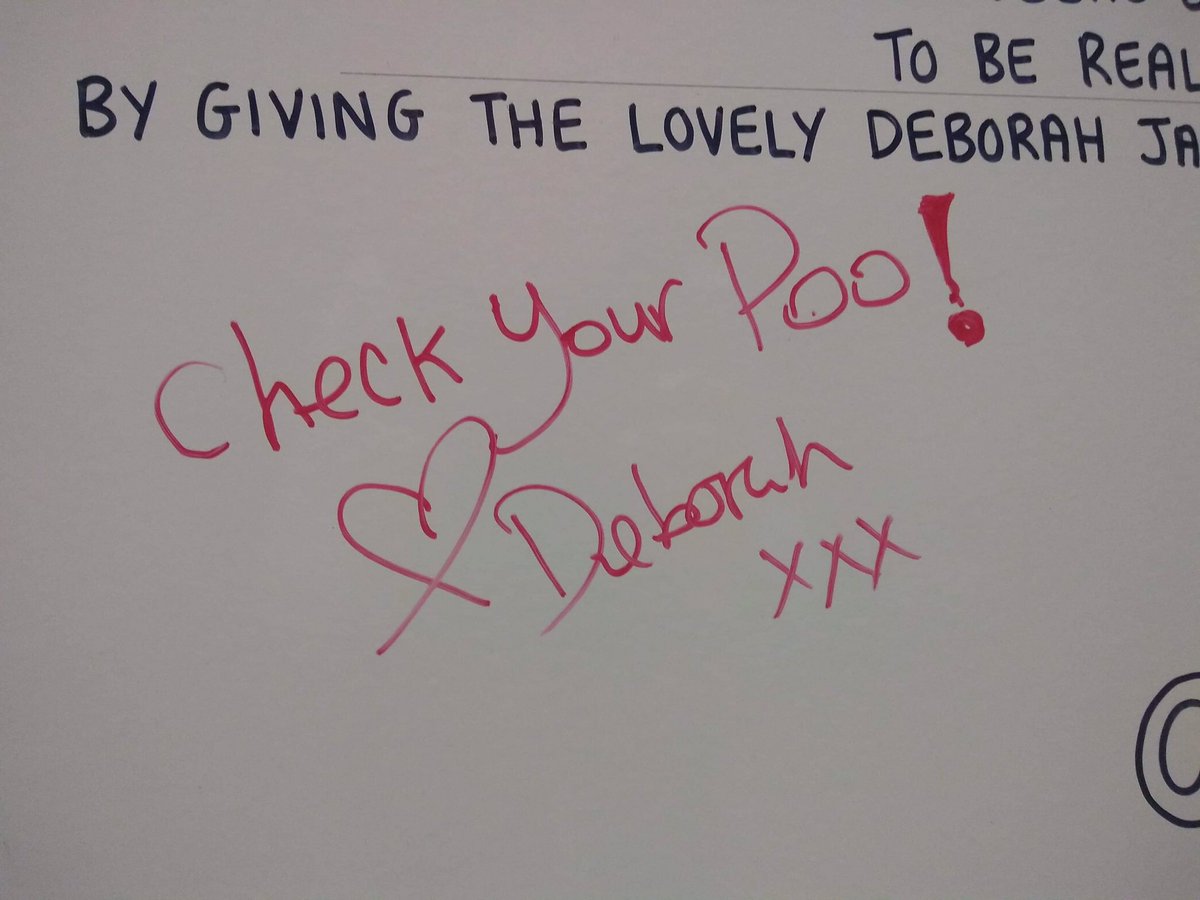 TO BE REAL
BY GIVING THE LOVELY DEBORAH JA
Check Your Poo!
Deborah
xxx